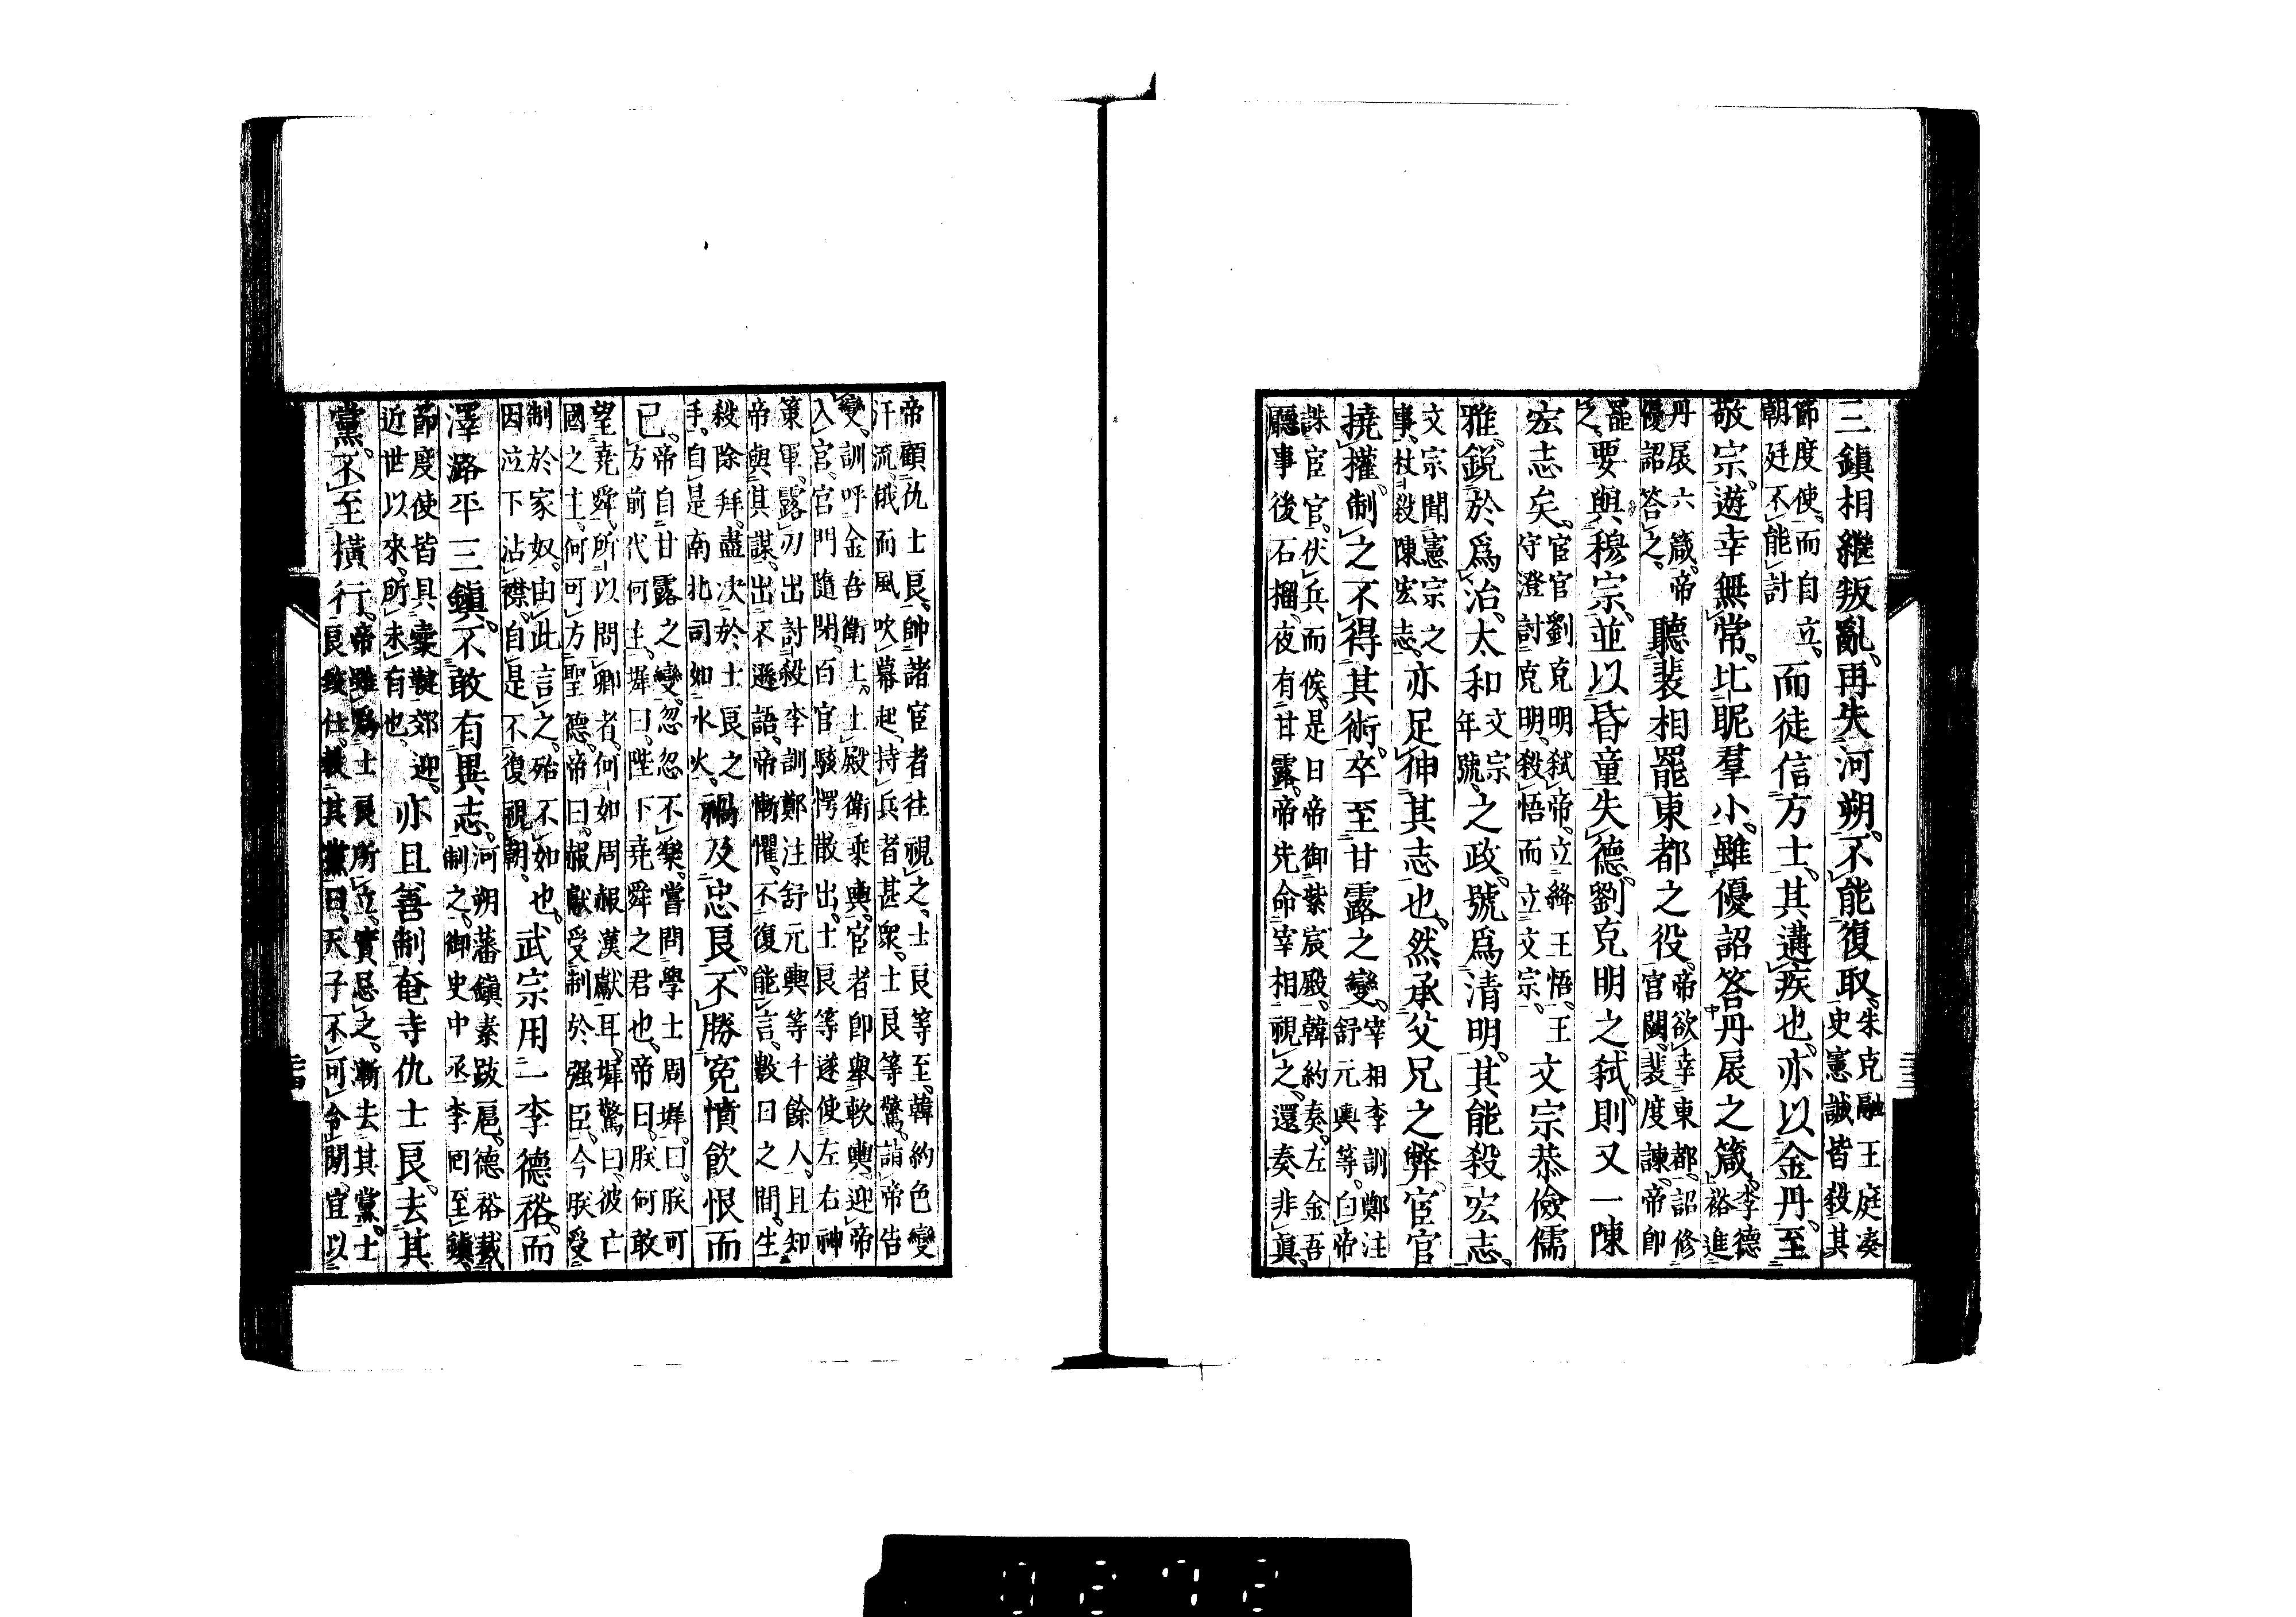 三鎮相繼叛亂。再失河朔。不能復取。朱克融王庭湊史憲誠皆殺其
節度使。而自立。朝廷不能討而徒信方士。其遘疾也。亦以金丹。至
敬宗。遊幸無常。比昵羣小。雖優詔答丹扆之箴。李德裕進
丹扆六箴。帝優詔答之。聽裴相罷東都之役。帝欲幸東都。詔修宮闕。裴度諫。帝卽
罷之。要與穆宗。並以昏童失德。劉克明之弑。則又一陳
宏志矣。宦官劉克明弑帝。立絳王悟。王守澄討克明。殺悟而立文宗。文宗恭儉儒
雅。銳於爲治。太和文宗年號。之政。號爲清明。其能殺宏志。
文宗聞憲宗之事。杖殺陳宏志。亦足伸其志也。然承父兄之弊。宦官
撓權。制之不得其術。卒至甘露之變。宰相李訓鄭注舒元輿等。白帝
誅宦官。伏兵而俟。是日帝御紫宸殿。韓約奏。左金吾廳事後石榴。夜有甘露。帝先命宰相視之。還奏非眞。
帝顧仇士良。帥諸宦者往視之。士良等至。韓約色變汗流。俄而風吹幕起。持兵者甚衆。士良等驚。詣帝告
變。訓呼金吾衛士。上殿衛乘輿。宦者卽舉軟輿。迎帝入宮。宮門隨閉。百官駭愕散出。士良等遂使左右神
策軍。露刃出討。殺李訓鄭注舒元輿等千餘人。且知帝與其謀。出不遜語。帝慚懼。不復能言。數日之間。生
殺除拜。盡决於士良之手。自是南北司如水火。禍及忠良。不勝冤憤飮恨而
已。帝自甘露之變。忽忽不樂。嘗問學士周墀。曰。朕可方前代何主。墀曰。陛下堯舜之君也。帝曰。朕何敢
望堯舜。所以問卿者。何如周赧漢獻耳。墀驚曰。彼亡國之主。何可方聖德。帝曰。赧獻受制於强臣。今朕受
制於家奴。由此言之。殆不如也。因泣下沾襟。自是不復視朝。武宗用一李德裕。而
澤潞平三鎮。不敢有異志。河朔藩鎮素跋扈。德裕裁制之。御史中丞李囘至鎮。
節度使皆具櫜鞬郊迎。近世以來。所未有也。亦且善制奄寺仇士良。去其
黨。不至橫行。帝雖爲士良所立。實忌之。漸去其黨。士良致仕。敎其黨曰。天子不可令閑。宜以